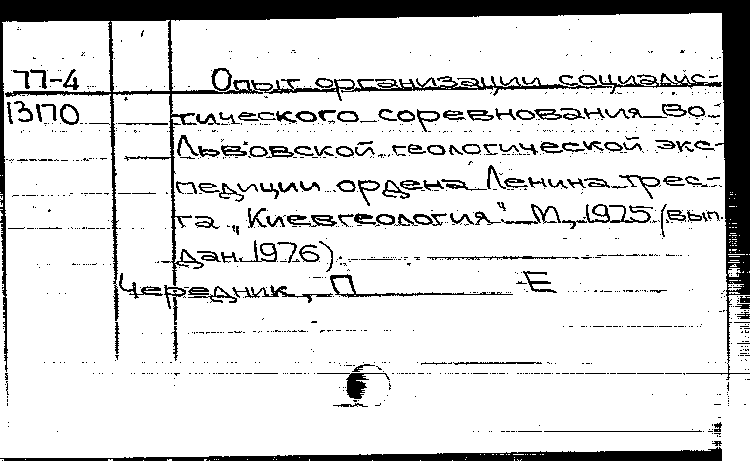 77-4 Опыт организации социалис-
13170 тического соревнования во
Львовской геологической экс-
педиции ордена Ленина трес-
та „Киевгеология" М., 1975 (вып.
дан. 1976).
Чередник, П Е